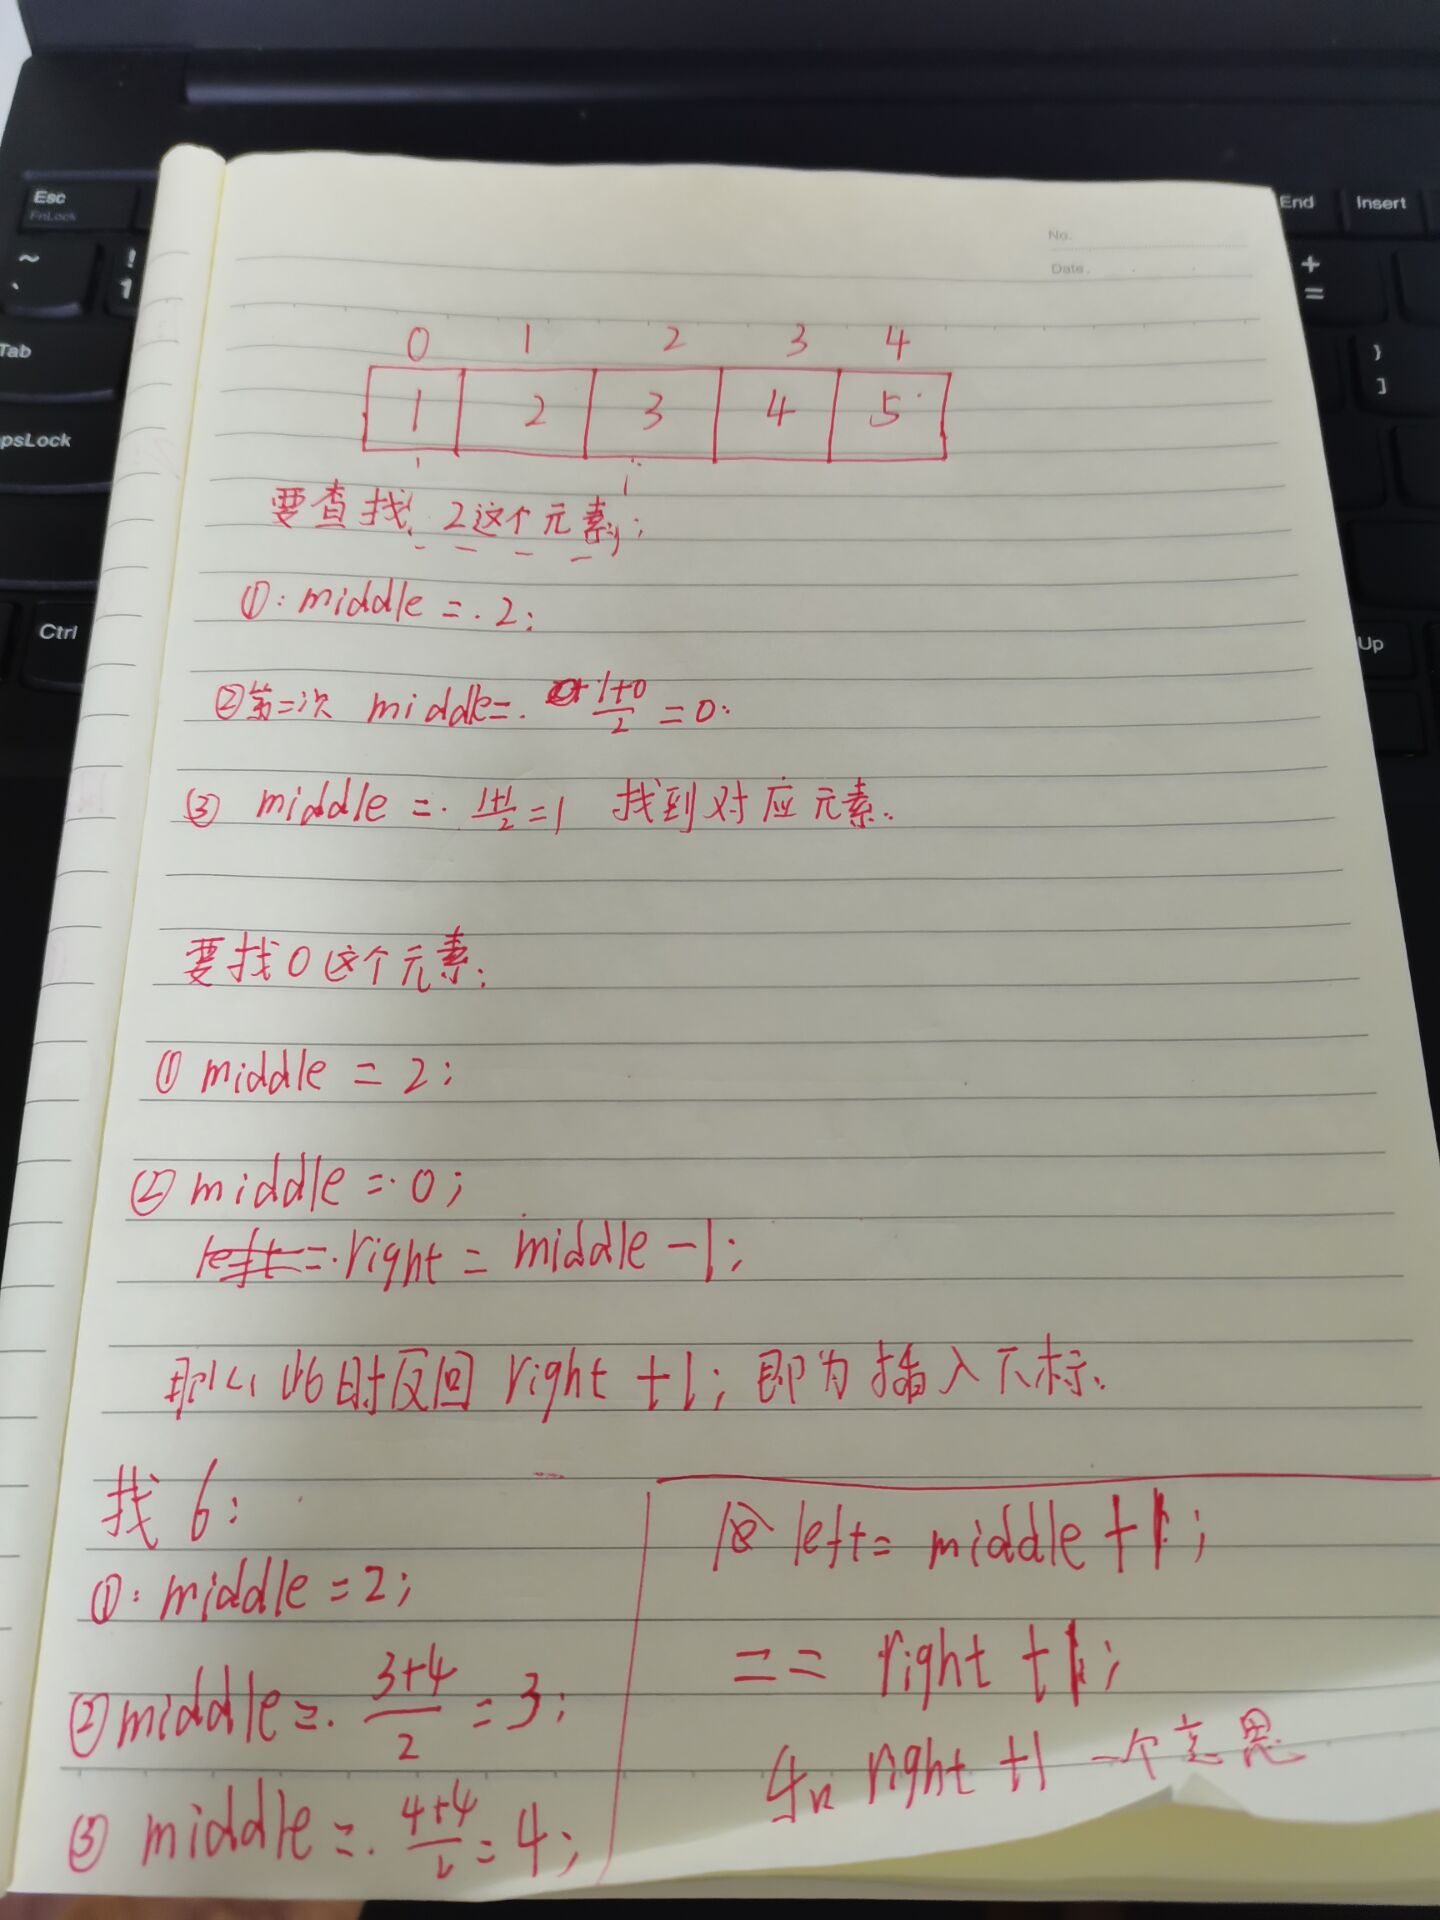 Esc
FnLock
End
Insert
~
!
`
1
+
=
Tab
}
]
psLock
Ctrl
Up
No.
Date.
0 1 2 3 4
1 2 3 4 5
要查找 2这个元素;
①: middle = 2;
②第二次 middle = (1+0)/2 = 0.
③ middle = (1+1)/2 = 1 找到对应元素.
要找0这个元素;
① middle = 2;
② middle = 0;
left = right = middle -1;
那么此时返回 right +1; 即为插入下标.
找 6:
①: middle = 2;
② middle = (3+4)/2 = 3;
③ middle = (4+4)/2 = 4;
left = middle +1;
== right +1;
和 right +1 一个意思